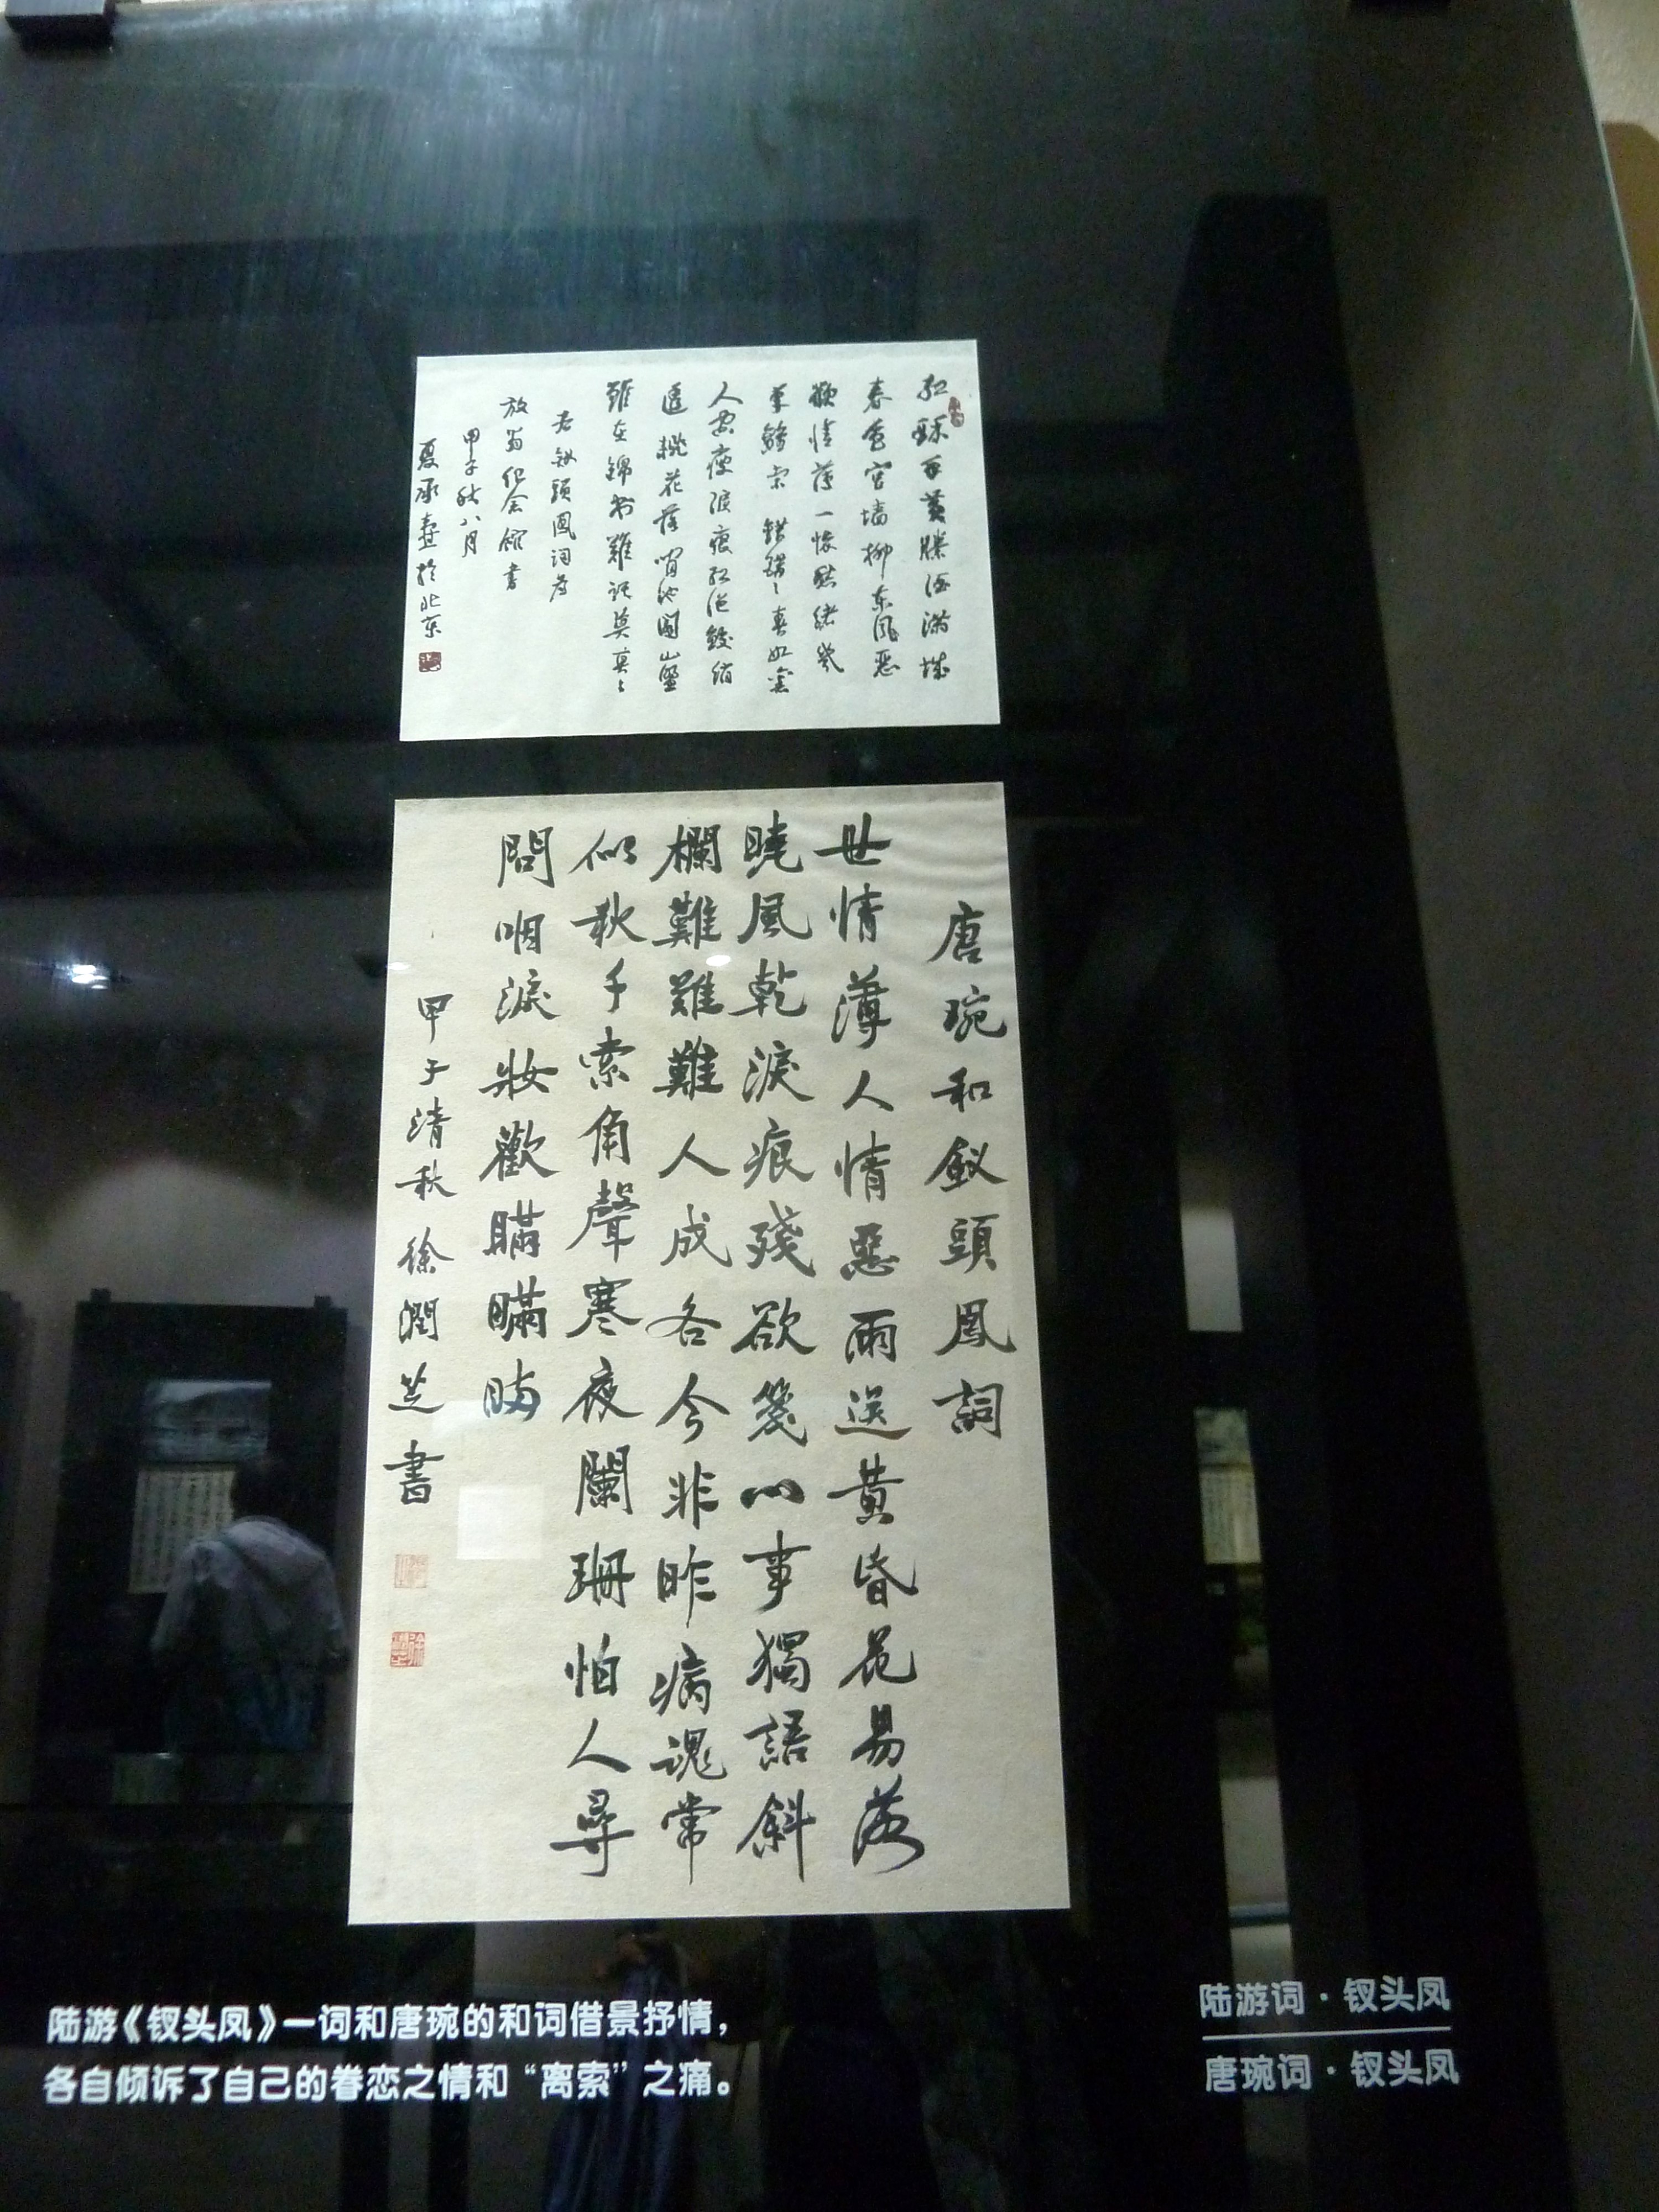 红酥手黄縢酒满城
春色宫墙柳东风恶
歡情薄一懷愁緒幾
年離索錯錯〻春如舊
人空瘦淚痕红浥鲛绡
透桃花落閒池閣山盟
雖在錦书難託莫莫〻
右釵頭鳳詞为
放翁纪念館書
甲子秋八月
夏承燾於北京
唐琬和釵頭鳳詞
世情薄人情惡雨送黄昏花易落
曉風乾淚痕殘欲箋心事獨語斜
欄難難難人成各今非昨病魂常
似秋千索角聲寒夜闌珊怕人尋
問咽淚妝歡瞞瞞瞞
甲子清秋徐潤芝書
陆游《钗头凤》一词和唐琬的和词借景抒情，
各自倾诉了自己的眷恋之情和“离索”之痛。
陆游词·钗头凤
唐琬词·钗头凤